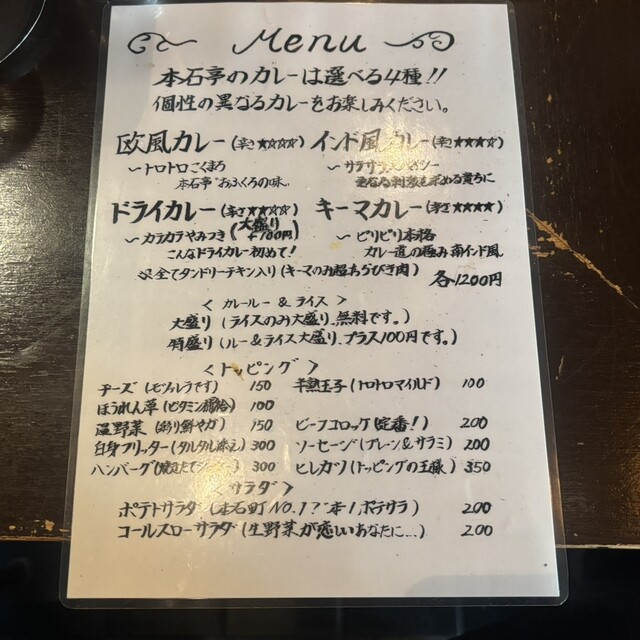 Menu
本石亭のカレーは選べる4種!!
個性の異なるカレーをお楽しみください。
欧風カレー(辛さ★☆☆☆) インド風カレー(辛さ★★★☆)
〜トロトロこくまろ 〜サラサラ
本石亭"おふくろの味" 刺激を求める貴方に
ドライカレー(辛さ★★☆☆) キーマカレー(辛さ★★★★)
〜カラカラやみつき(大盛り+100円) 〜ピリピリ本格
こんなドライカレー初めて! カレー道の極み南インド風
※全てタンドリーチキン入り(キーマのみ超あらびき肉) 各1200円
<カレールー&ライス>
大盛り(ライスのみ大盛り、無料です。)
特盛り(ルー&ライス大盛り、プラス100円です。)
<トッピング>
チーズ(モツァレラです) 150 半熟玉子(トロトロマイルド) 100
ほうれん草(ビタミン補給) 100
温野菜(彩り鮮やか) 150 ビーフコロッケ(定番!) 200
白身フリッター(タルタル添え) 300 ソーセージ(プレーン&サラミ) 200
ハンバーグ(焼きたて) 300 ヒレカツ(トッピングの王様) 350
<サラダ>
ポテトサラダ(本石町NO.1?"本"1ポテサラ) 200
コールスローサラダ(生野菜が恋しいあなたに…) 200